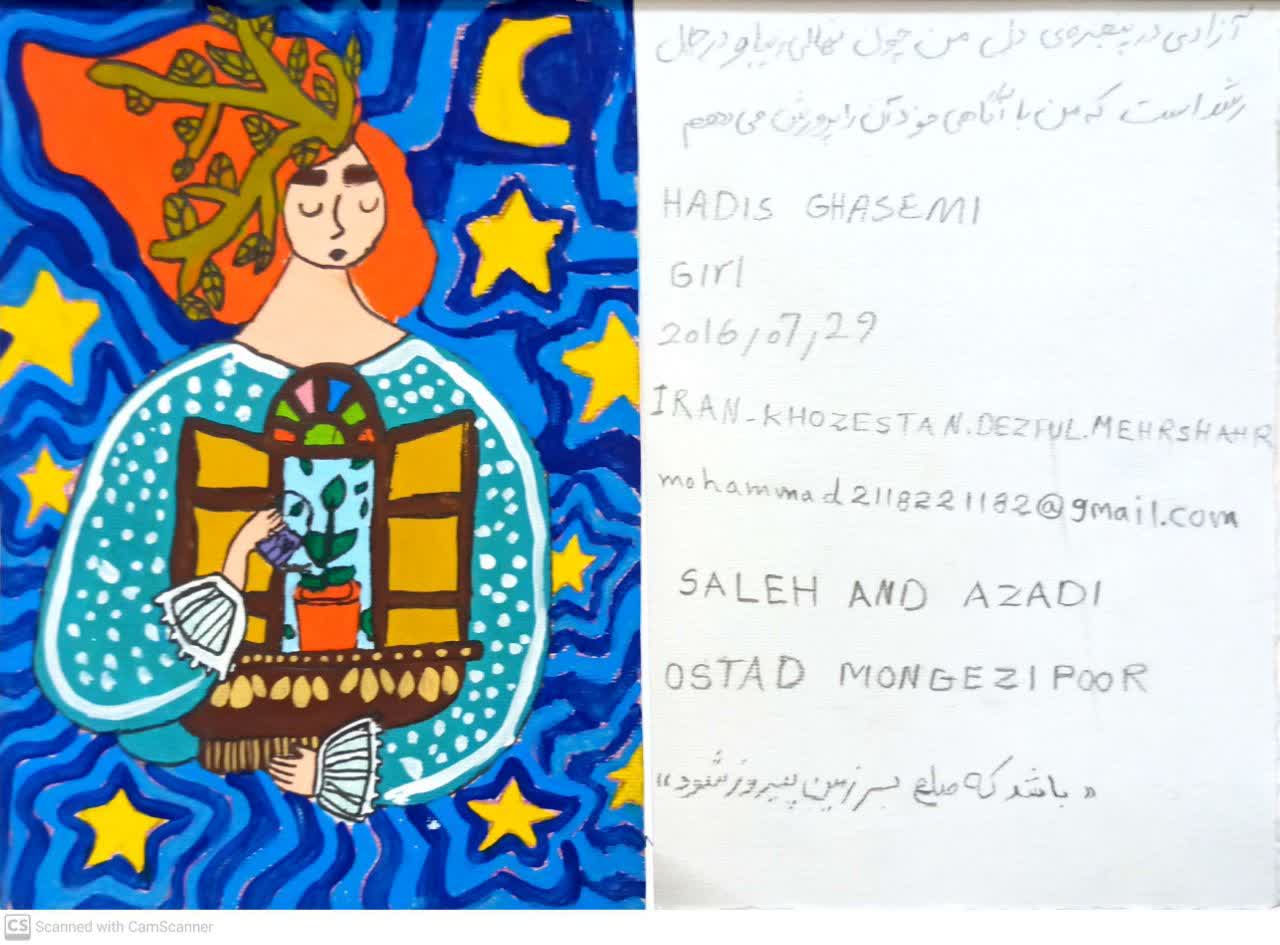 آزادی در پنجره‌ی دل من چون نهالی زیبا و در حال
رشد است که من با آگاهی خود آن را پرورش می دهم
HADIS GHASEMI
GIrl
2016/07/29
IRAN-KHOZESTAN.DEZFUL.MEHRSHAHR
mohammad2118221182@gmail.com
SALEH AND AZADI
OSTAD MONGEZIPOOR
« باشد که صلح بر زمین پیروز شود »
CS Scanned with CamScanner